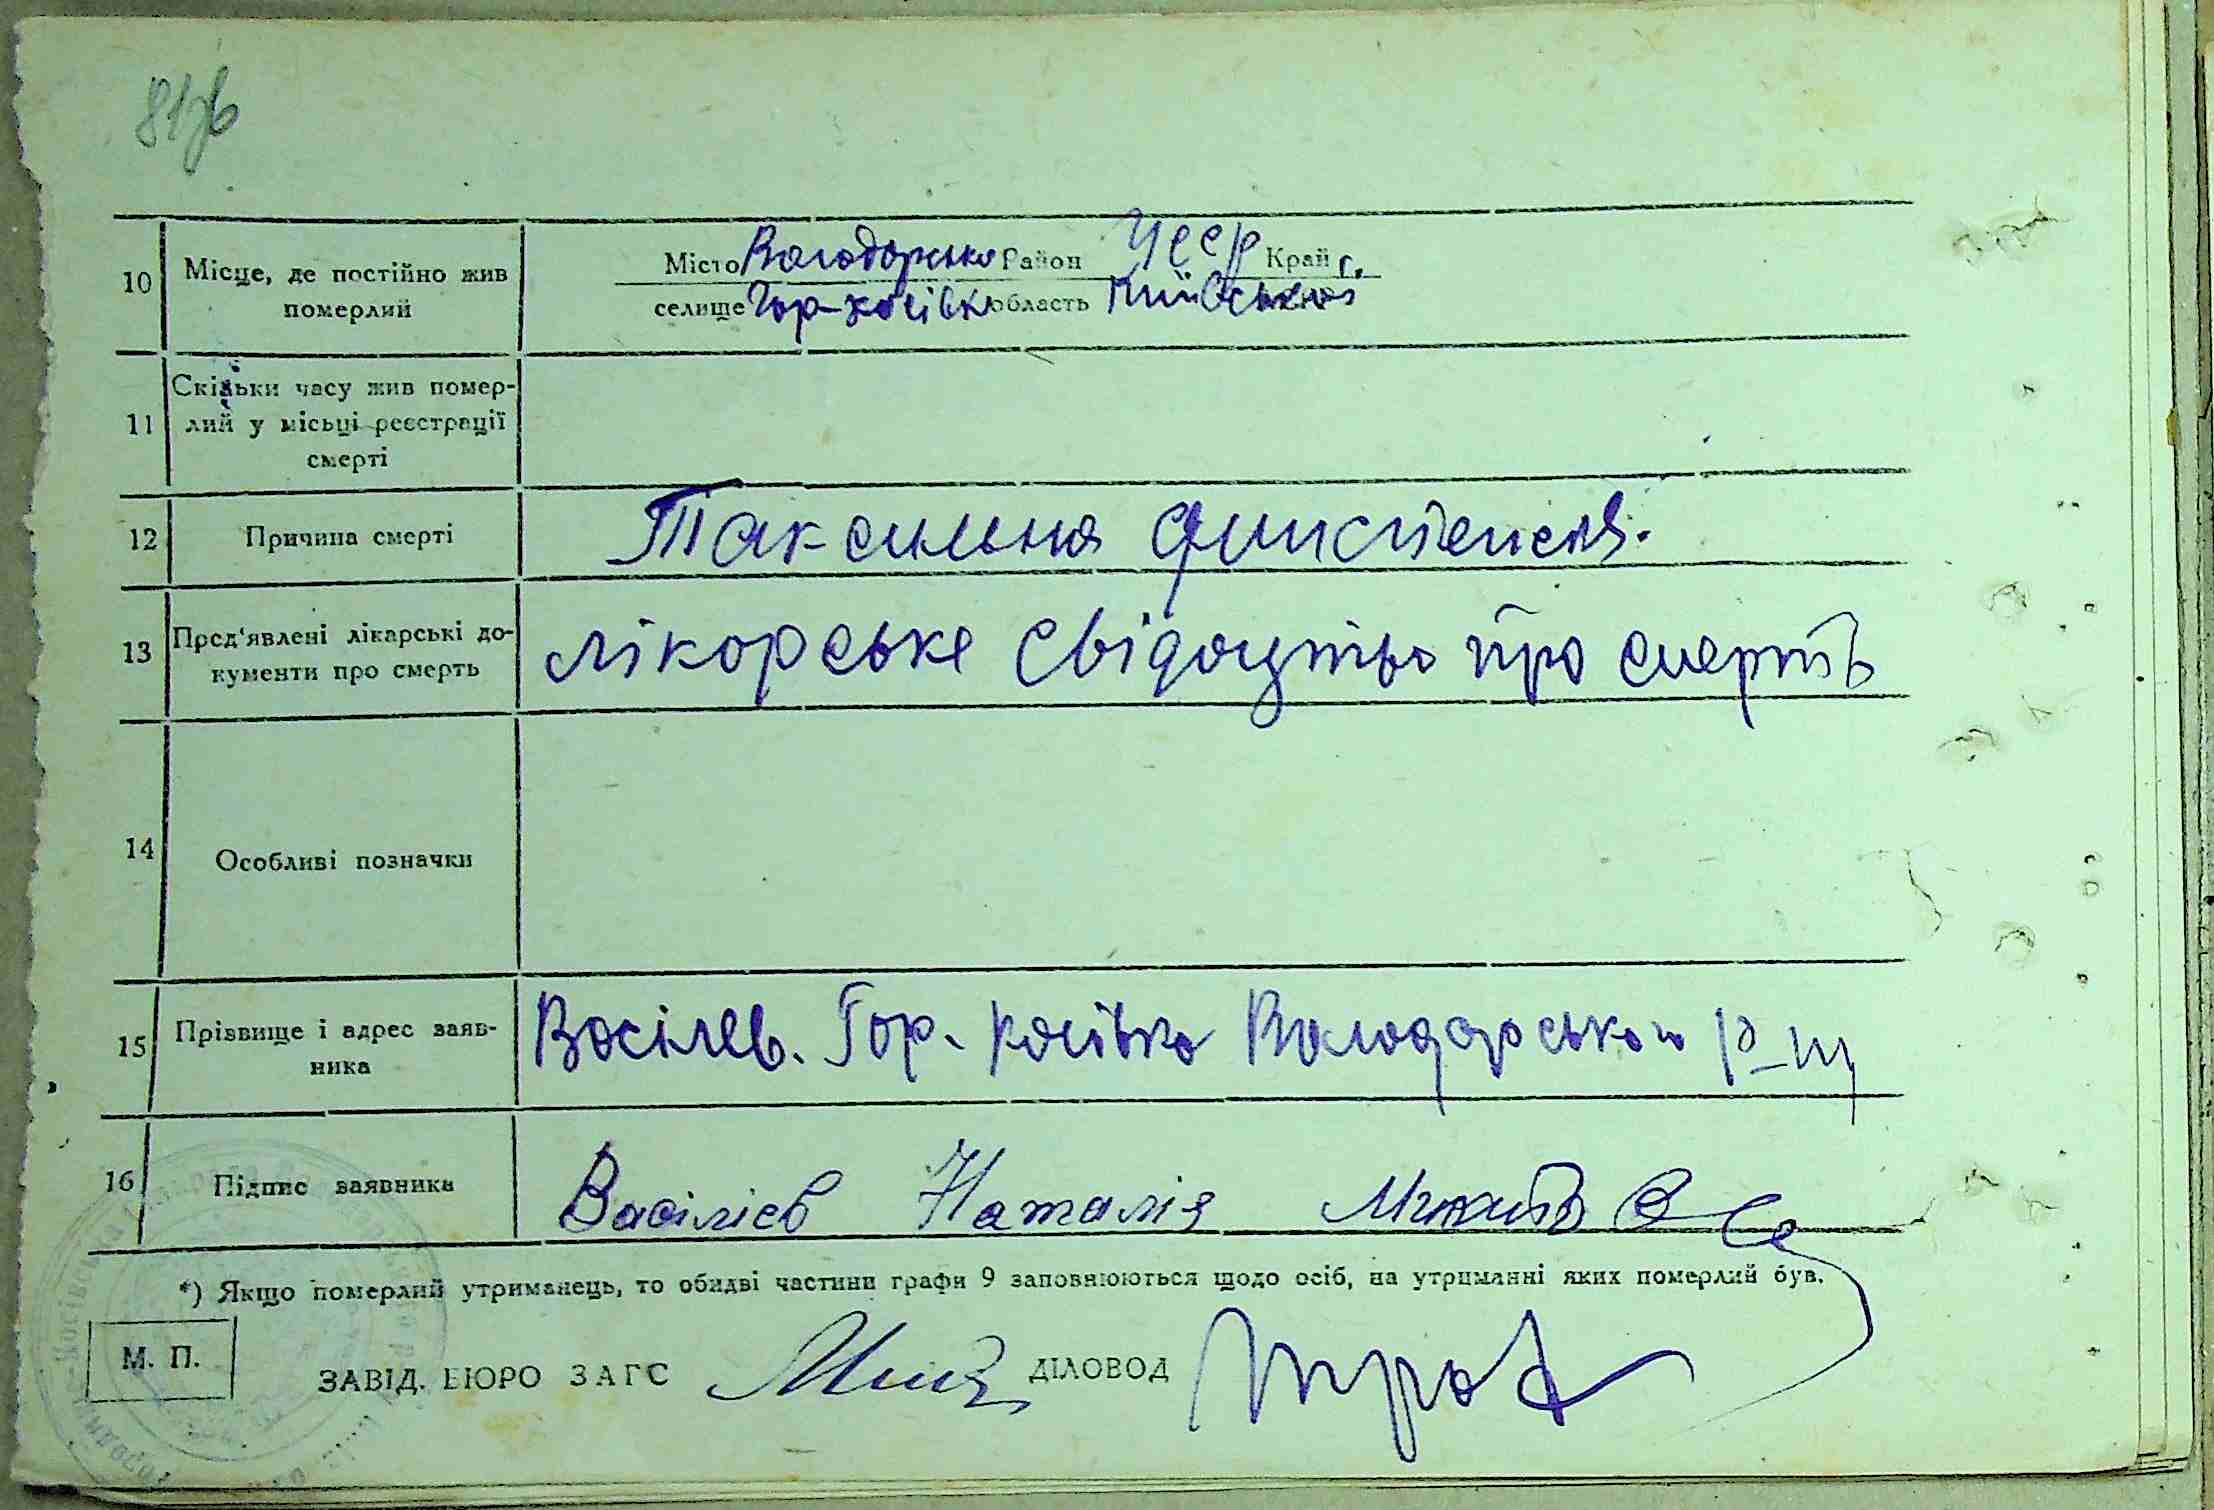 81зв
10 Місце, де постійно жив Місто Володарсько Район УССР Край г.
померлий селище Гор-косівка область Київської
11 Скільки часу жив помер-
лий у місьці реєстрації
смерті
12 Причина смерті Таксильна диспепсия.
13 Пред'явлені лікарські до- лікорське свідоцтво про смерть
кументи про смерть
14 Особливі позначки
15 Прізвище і адрес заяв- Васілєв. Гор. косівка Володарського р-ну
ника
16 Підпис заявника Васілієв Наталія
*) Якщо померлий утриманець, то обидві частини графи 9 заповнюються щодо осіб, на утриманні яких померлий був.
М. П. ЗАВІД. БЮРО ЗАГС ДІЛОВОД